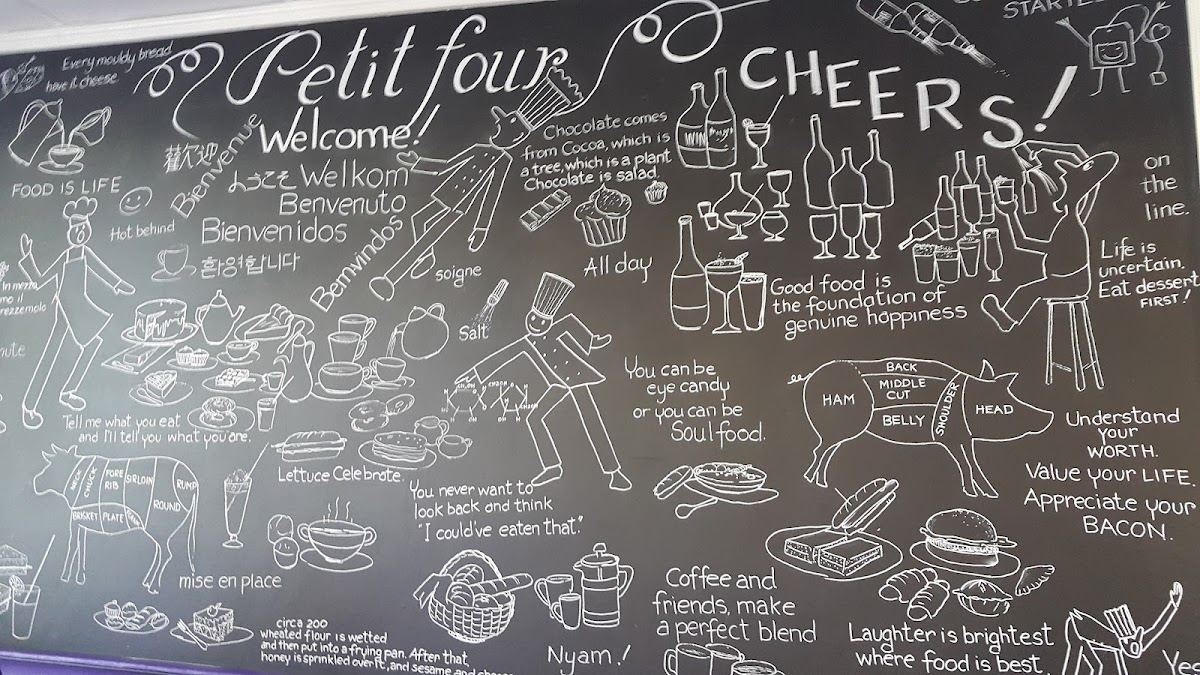 Every mouldy bread
have it cheese
Petit four
CHEERS!
Welcome!
歡迎
Bienvenue
ようこそ
Welkom
Benvenuto
Bienvenidos
환영합니다
Benvindos
FOOD IS LIFE
Hot behind
In mezzo
mo il
rezzemolo
nute
Chocolate comes
from Cocoa, which is
a tree, which is a plant
Chocolate is salad.
WINE
All day
soigne
Salt
Good food is
the foundation of
genuine happiness
on
the
line.
Life is
uncertain.
Eat dessert
FIRST!
Tell me what you eat
and I'll tell you what you are.
NECK
CHUCK
FORE
RIB
SIRLOIN
RUMP
BRISKET
PLATE
ROUND
Lettuce Celebrate.
You never want to
look back and think
"I could've eaten that."
CH₂OH
You can be
eye candy
or you can be
Soul food.
HAM
BACK
MIDDLE
CUT
BELLY
SHOULDER
HEAD
Understand
your
WORTH.
Value your LIFE.
Appreciate your
BACON.
mise en place
circa 200
wheated flour is wetted
and then put into a frying pan. After that
honey is sprinkled over it, and sesame and cheese
Nyam!
Coffee and
friends, make
a perfect blend
Laughter is brightest
where food is best.
Yes